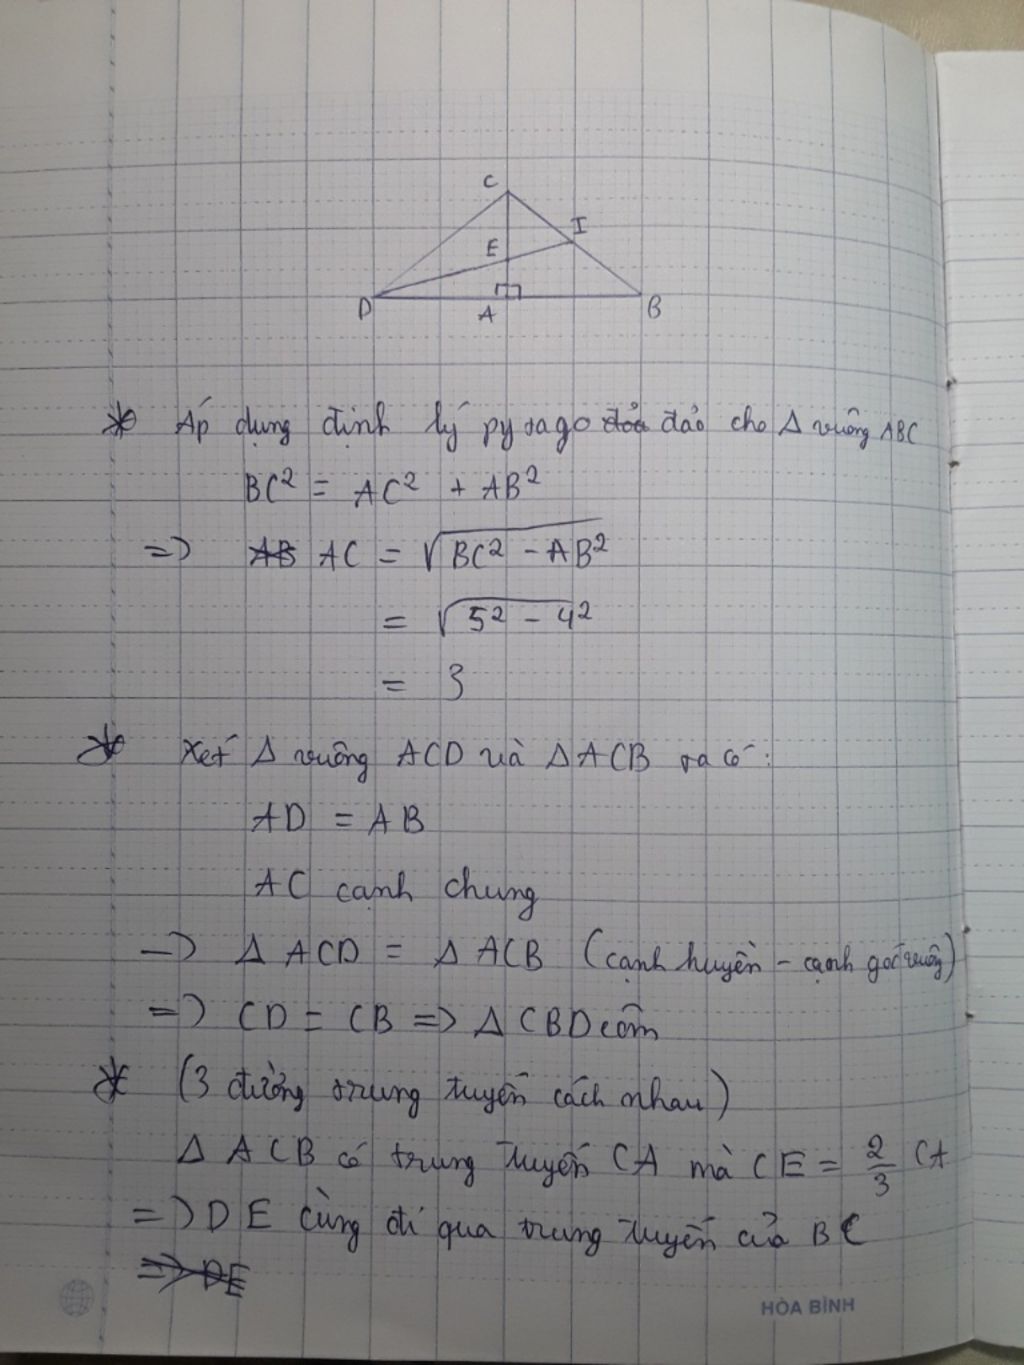 C
I
E
D
A
B
* Áp dụng định lý pysago đảo đảo cho Δ vuông ABC
BC² = AC² + AB²
=> AB AC = √BC² - AB²
= √5² - 4²
= 3
* Xét Δ vuông ACD và Δ ACB ta có :
AD = AB
AC cạnh chung
-> Δ ACD = Δ ACB (cạnh huyền - cạnh góc vuông)
=> CD = CB => Δ CBD cân
* (3 đường trung tuyến cách nhau)
Δ ACB có trung tuyến CA mà CE = 2/3 CA
=> DE cùng đi qua trung tuyến của BC
=> DE
HÒA BÌNH